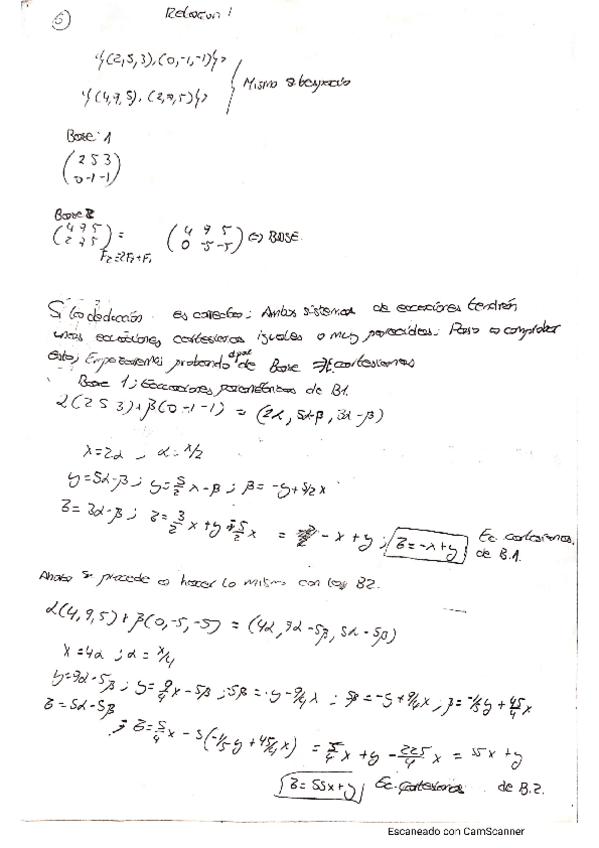 5
Relación 1
<{(2,5,3),(0,-1,-1)}>
Mismo subespacio
<{(4,9,5),(2,7,5)}>
Base 1
(2 5 3
0 -1 -1)
Base 2
(4 9 5
2 7 5) =
F2=2F2+F1
(4 9 5
0 -5 -5) => BASE
Si la deducción es correcta; Ambos sistemas de ecuaciones tendrán
unas ecuaciones cartesianas iguales o muy parecidas. Para comprobar
esto; Empezaremos probando de Base cartesianas
Base 1; Ecuaciones paramétricas de B1.
α(2 5 3)+β(0 -1 -1) = (2α, 5α-β, 3α-β)
x=2α ; α=x/2
y=5α-β ; y=5/2 x-β ; β=-y+5/2 x
z=3α-β ; z=3/2 x+y-5/2 x = -x+y ; z=-x+y
Ec. cartesianas
de B.1.
Ahora se procede a hacer lo mismo con la B2.
α(4,9,5)+β(0,-5,-5) = (4α, 9α-5β, 5α-5β)
x=4α ; α=x/4
y=9α-5β ; y=9/4 x-5β ; 5β=-y-9/4 x ; 5β=-y+9/4 x ; β=-1/5 y+45/4 x
z=5α-5β
; z=5/4 x-5(-1/5 y+45/4 x) = 5/4 x+y-225/4 x = 55x+y
z=55x+y Ec. cartesianas de B.2.
Escaneado con CamScanner